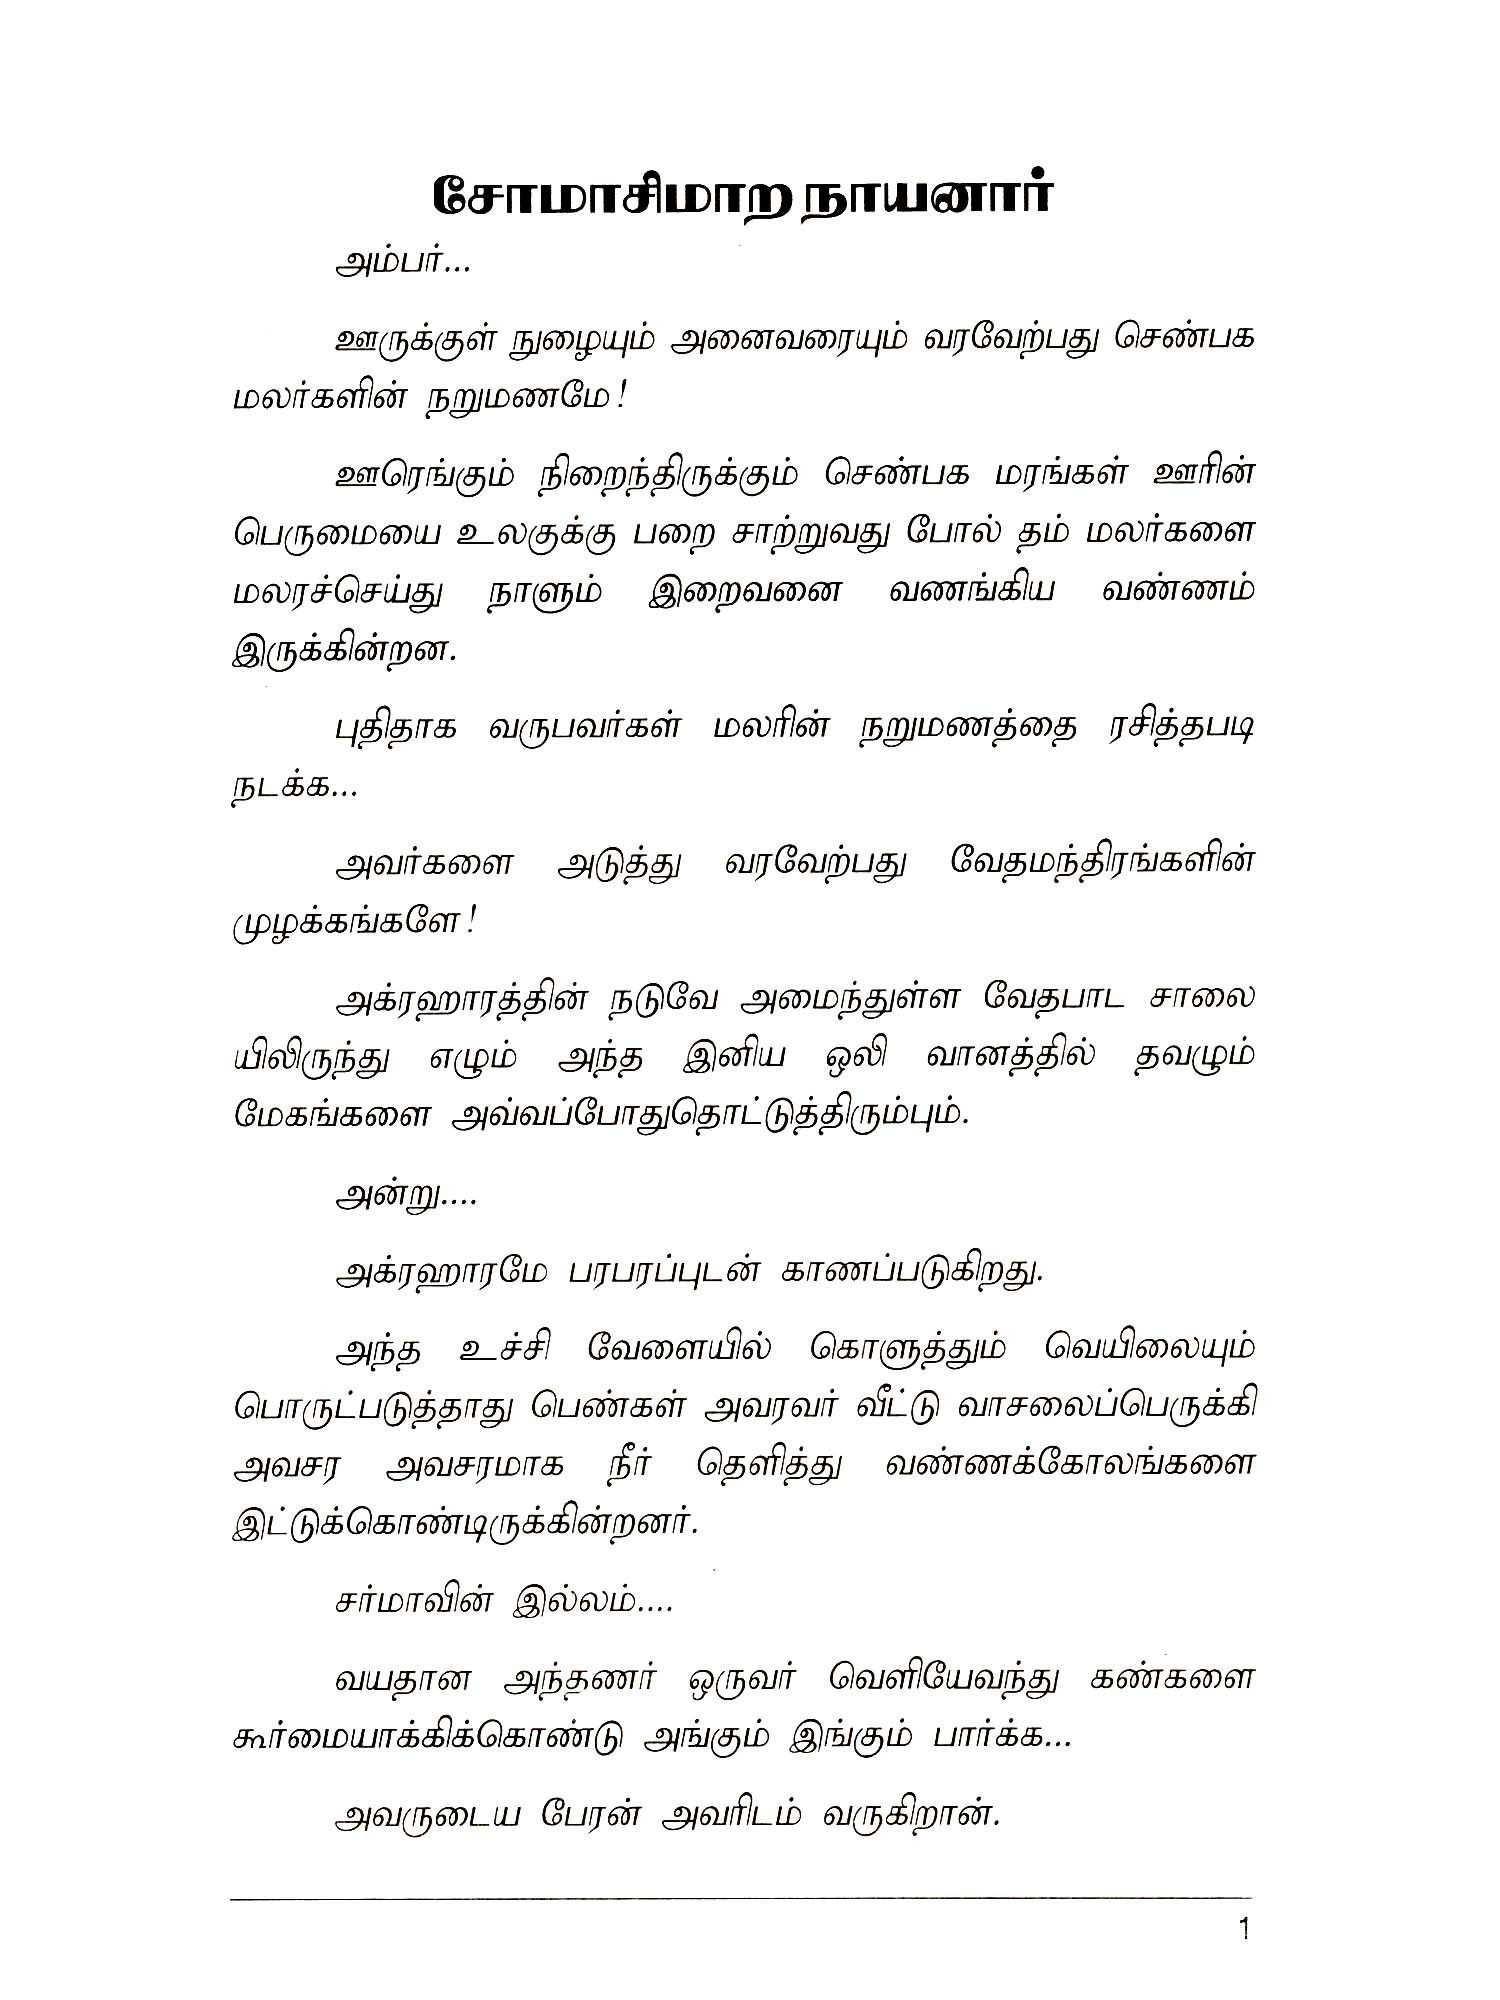 சோமாசிமாற நாயனார்
அம்பர்...
ஊருக்குள் நுழையும் அனைவரையும் வரவேற்பது செண்பக
மலர்களின் நறுமணமே!
ஊரெங்கும் நிறைந்திருக்கும் செண்பக மரங்கள் ஊரின்
பெருமையை உலகுக்கு பறை சாற்றுவது போல் தம் மலர்களை
மலரச்செய்து நாளும் இறைவனை வணங்கிய வண்ணம்
இருக்கின்றன.
புதிதாக வருபவர்கள் மலரின் நறுமணத்தை ரசித்தபடி
நடக்க...
அவர்களை அடுத்து வரவேற்பது வேதமந்திரங்களின்
முழக்கங்களே!
அக்ரஹாரத்தின் நடுவே அமைந்துள்ள வேதபாட சாலை
யிலிருந்து எழும் அந்த இனிய ஒலி வானத்தில் தவழும்
மேகங்களை அவ்வப்போதுதொட்டுத்திரும்பும்.
அன்று....
அக்ரஹாரமே பரபரப்புடன் காணப்படுகிறது.
அந்த உச்சி வேளையில் கொளுத்தும் வெயிலையும்
பொருட்படுத்தாது பெண்கள் அவரவர் வீட்டு வாசலைப்பெருக்கி
அவசர அவசரமாக நீர் தெளித்து வண்ணக்கோலங்களை
இட்டுக்கொண்டிருக்கின்றனர்.
சர்மாவின் இல்லம்....
வயதான அந்தணர் ஒருவர் வெளியேவந்து கண்களை
கூர்மையாக்கிக்கொண்டு அங்கும் இங்கும் பார்க்க...
அவருடைய பேரன் அவரிடம் வருகிறான்.
1